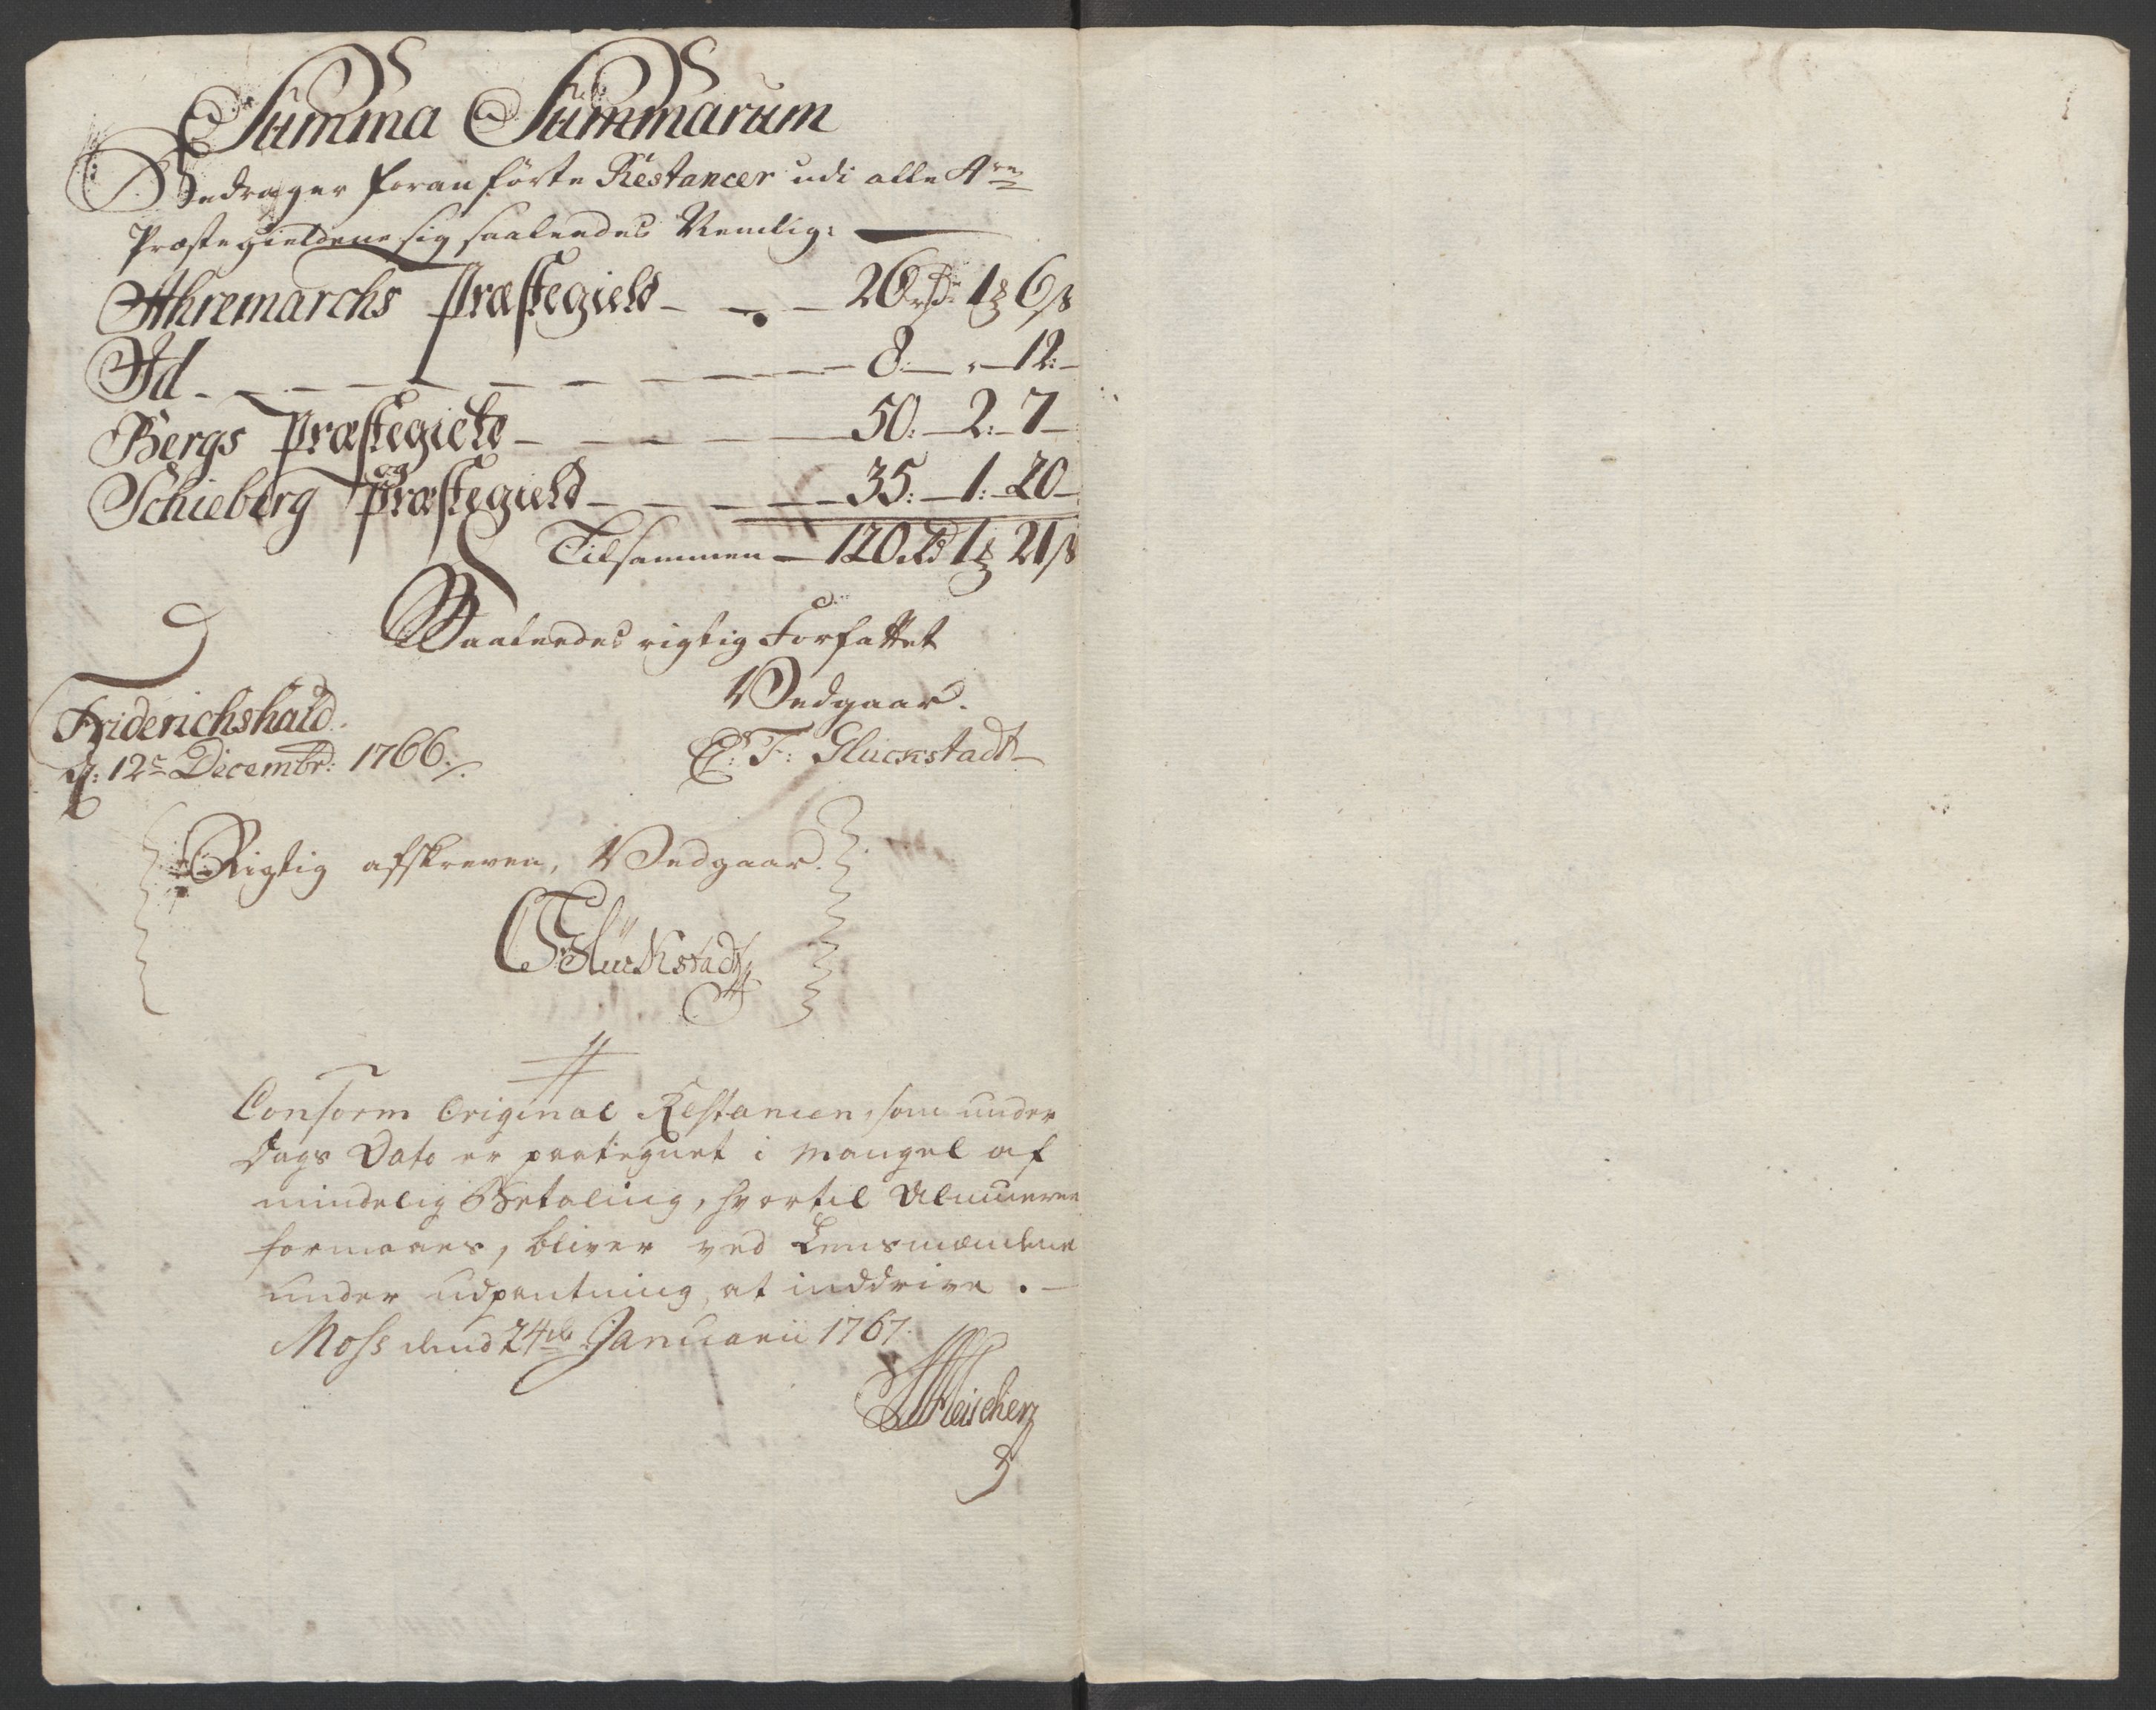 Summa Summarum
Bedrager foranførte Restancer udi alle 4re
Præstegieldene sig saaledes Nemlig:
Ahremarchs Præstegield - - - 26 rd 1 ꝣ 6 s
Id - - - - - - - 8: - " - 12: -
Bergs Præstegield - - - - 50: - 2: - 7 -
Schieberg og Præstegield - - - - 35: - 1: - 20 -
Tilsammen - 120 rd 1 ꝣ 21 s
Saaledes rigtig Forfattet
Vedgaar.
Friderichshald.
d: 12e Decembr: 1766.
C: F: Gluckstadt
Rigtig afskreven, Vedgaar.
CFGlückstadt
Conform Original Restancen, som under
Dags Dato er paategnet i Mangel af
mindelig Betaling, hvortil Almuen
formanes, bliver ved Lensmændene
under udpantning at inddrive. -
Moss dend 24de Januarii 1767.
Fleischer